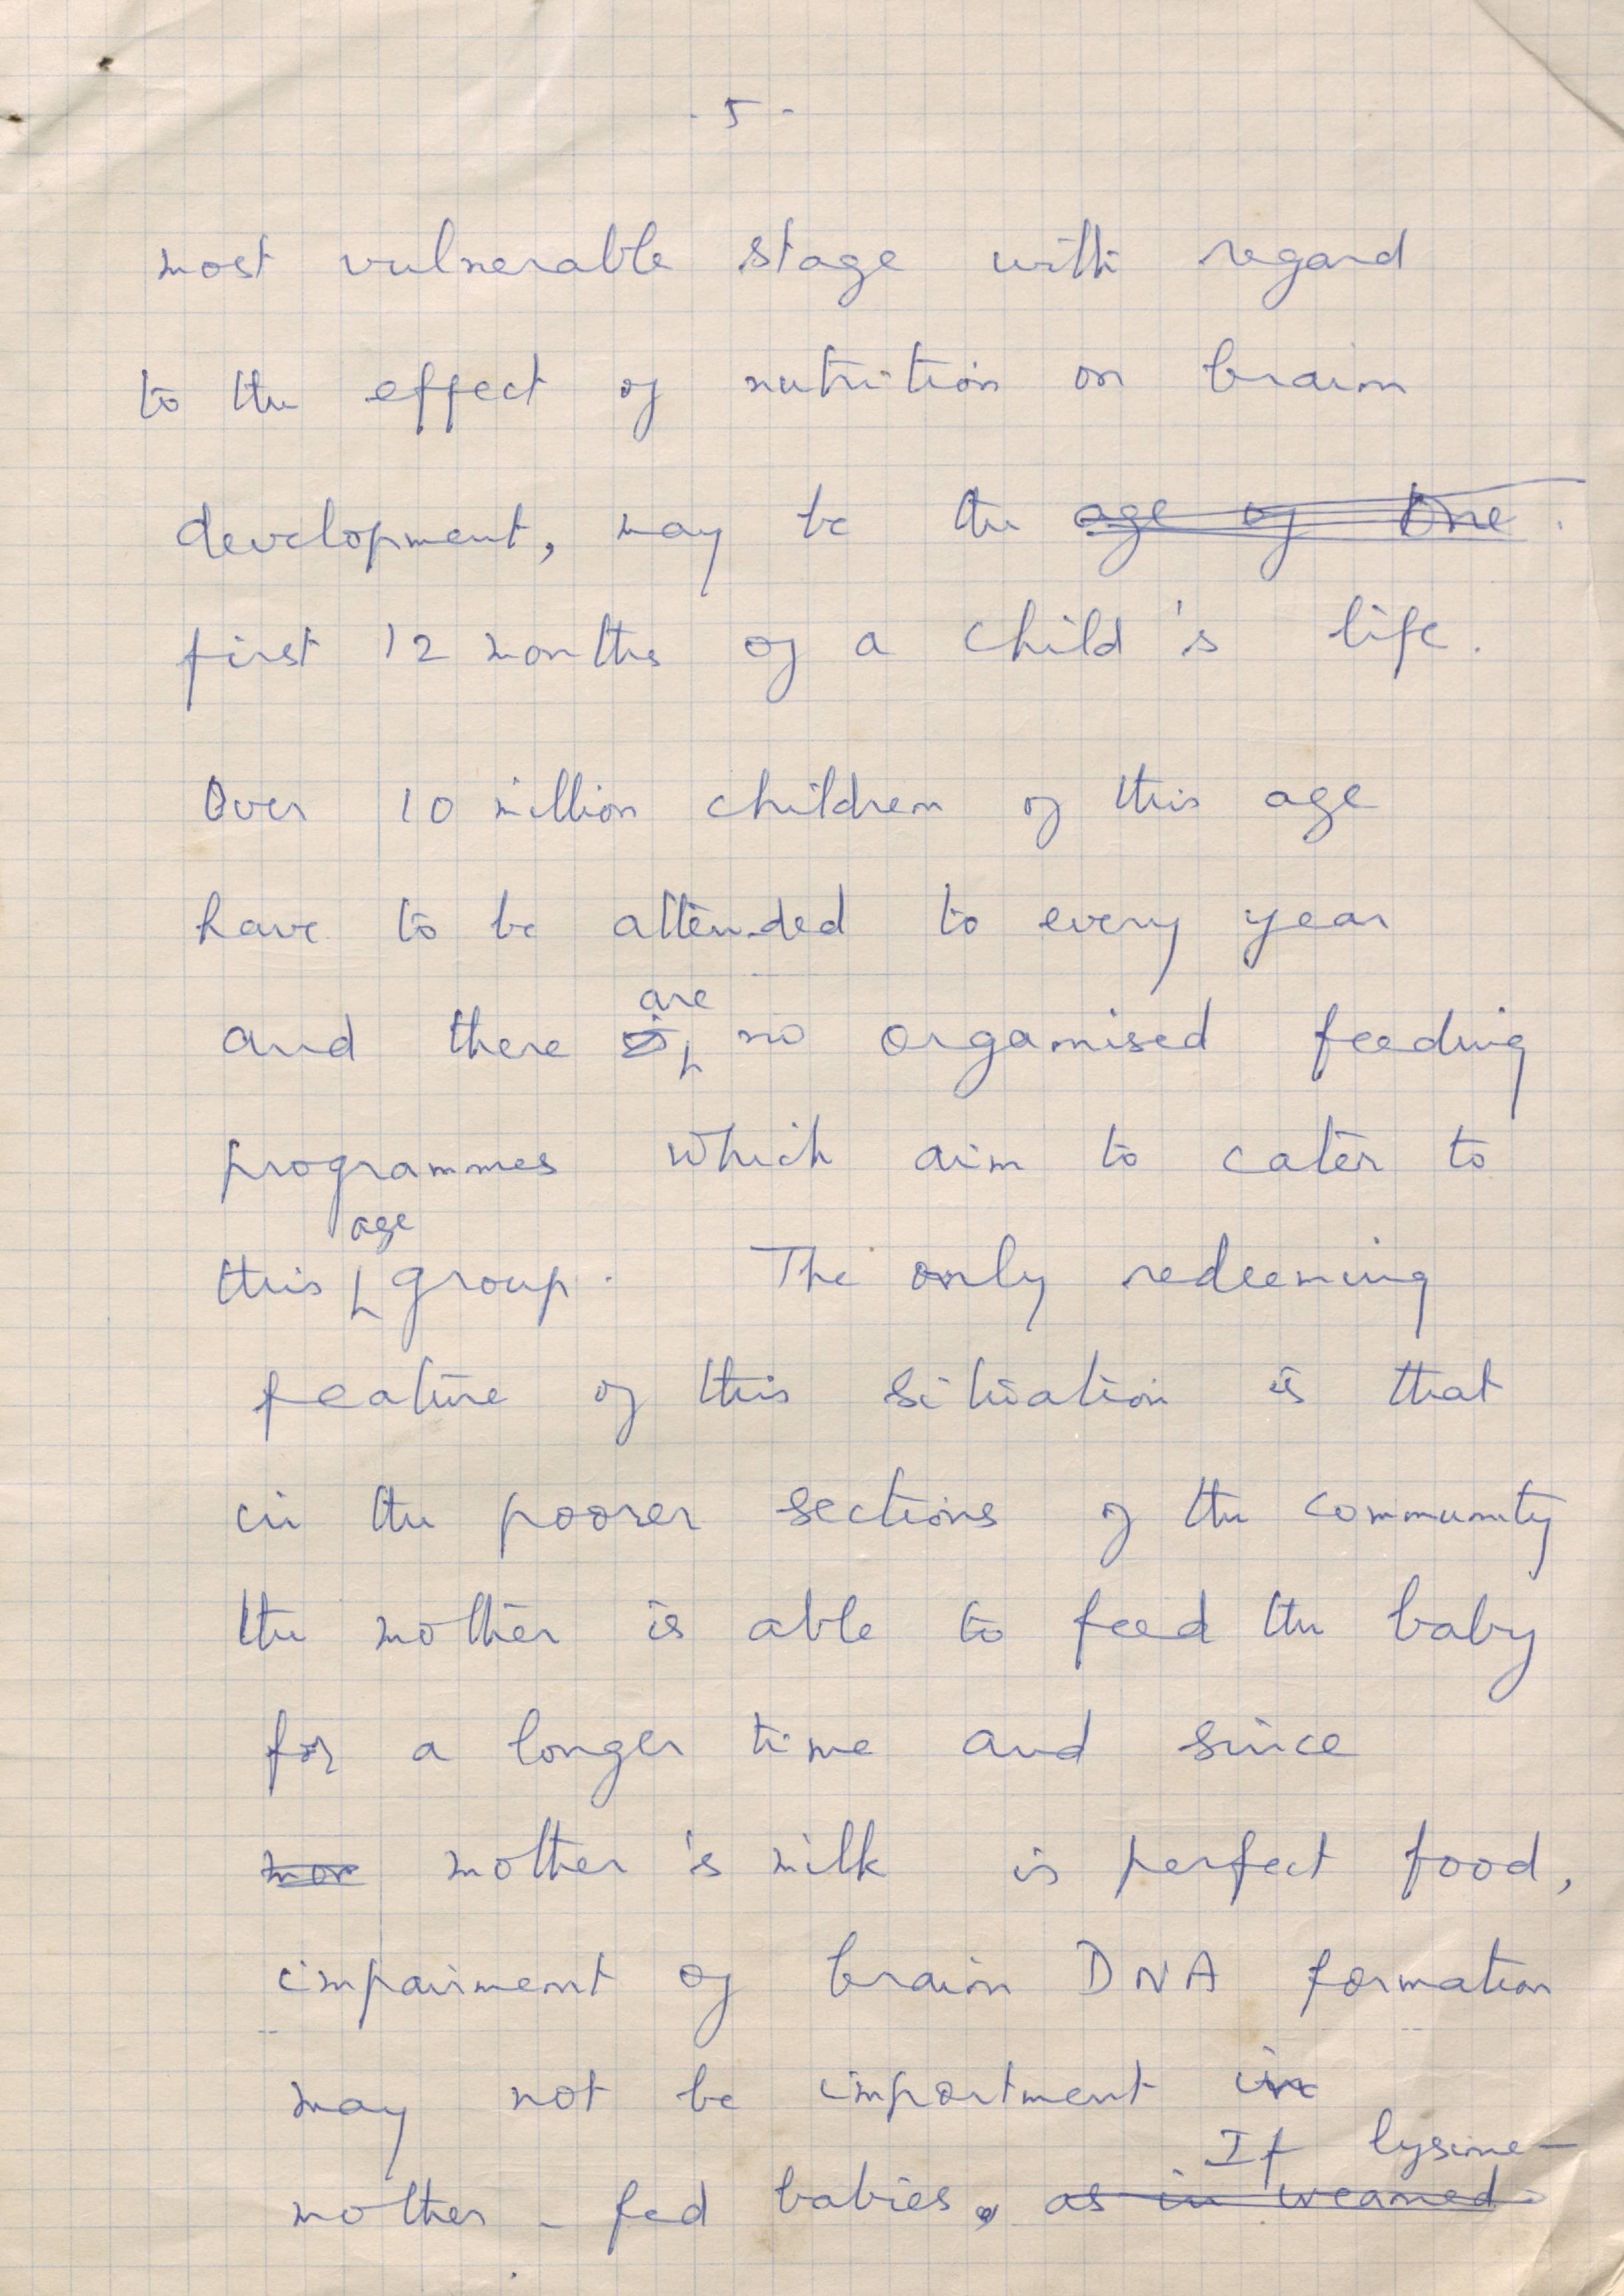 - 5 -
most vulnerable stage with regard
to the effect of nutrition on brain
development, may be the age of one.
first 12 months of a child's life.
Over 10 million children of this age
have to be attended to every year
and there is are no organised feeding
programmes which aim to cater to
this age group. The only redeeming
feature of this situation is that
in the poorer sections of the community
the mother is able to feed the baby
for a longer time and since
mor mother's milk is perfect food,
impairment of brain DNA formation
may not be importment in
If lysine-
mother-fed babies. as in weaned